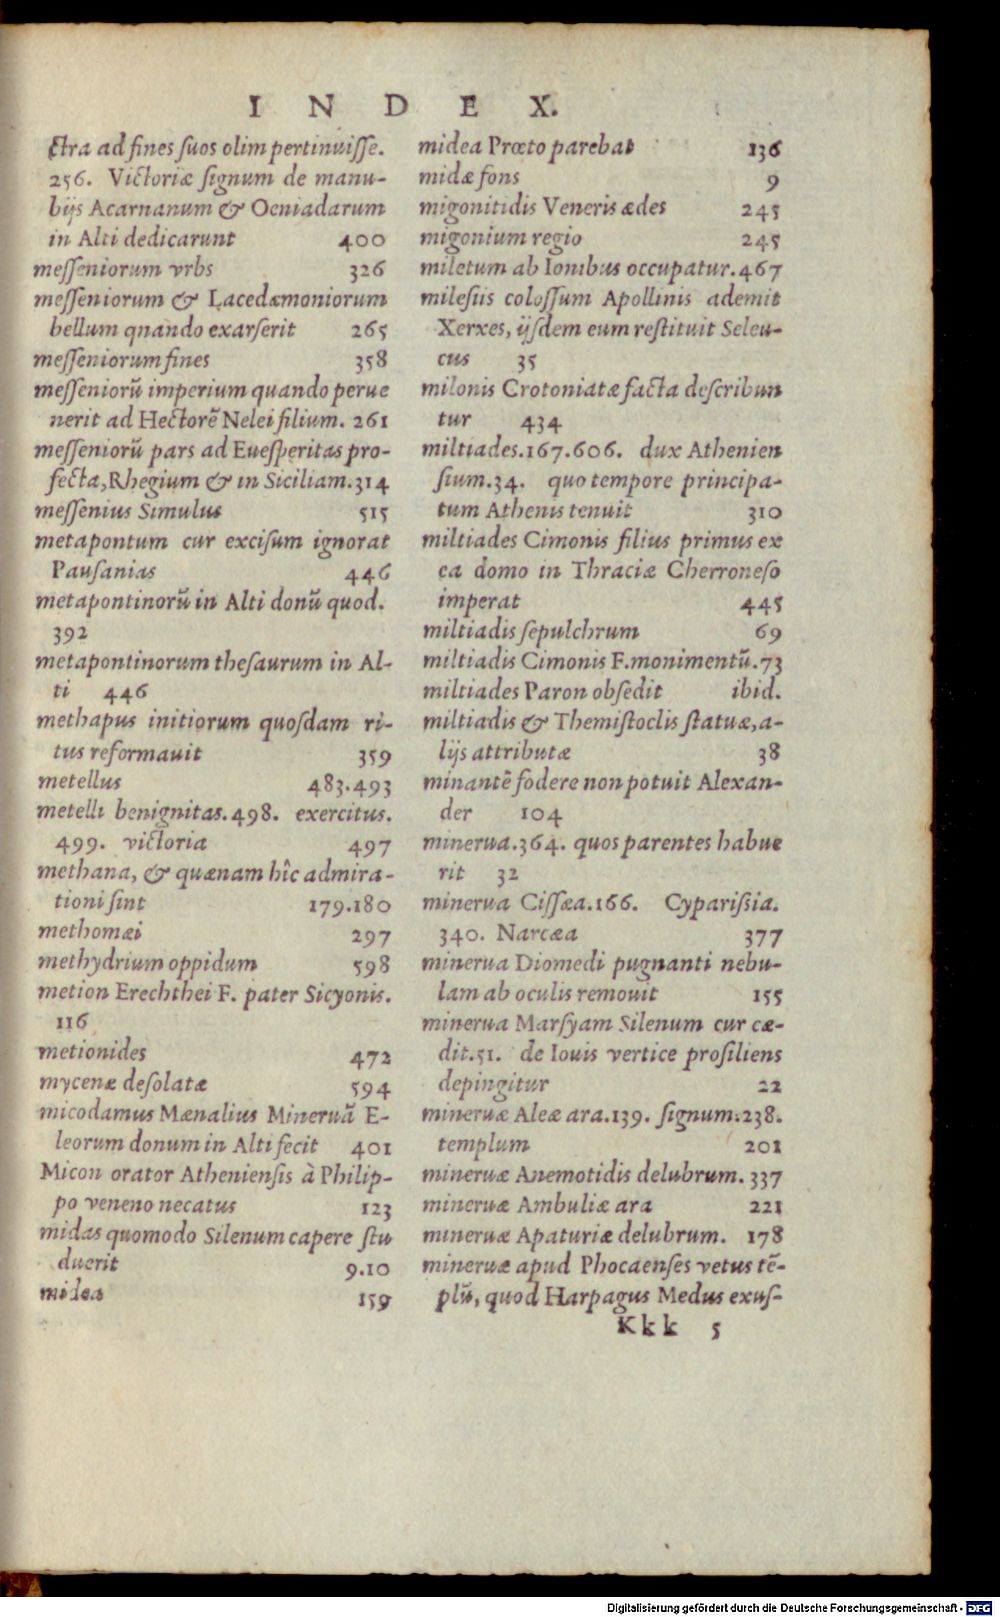 INDEX.
ctra ad fines suos olim pertinuisse.
256. Victoriæ signum de manu-
bijs Acarnanum & Oeniadarum
in Alti dedicarunt 400
messeniorum vrbs 326
messeniorum & Lacedæmoniorum
bellum quando exarserit 265
messeniorum fines 358
messeniorũ imperium quando perue
nerit ad Hectorẽ Nelei filium. 261
messeniorũ pars ad Euesperitas pro-
fecta, Rhegium & in Siciliam. 314
messenius Simulus 515
metapontum cur excisum ignorat
Pausanias 446
metapontinorũ in Alti donũ quod.
392
metapontinorum thesaurum in Al-
ti 446
methapus initiorum quosdam ri-
tus reformauit 359
metellus 483.493
metelli benignitas. 498. exercitus.
499. victoria 497
methana, & quænam hîc admira-
tioni sint 179.180
methomæi 297
methydrium oppidum 598
metion Erechthei F. pater Sicyonis.
116
metionides 472
mycenæ desolatæ 594
micodamus Mænalius Mineruã E-
leorum donum in Alti fecit 401
Micon orator Atheniensis à Philip-
po veneno necatus 123
midas quomodo Silenum capere stu
duerit 9.10
midea 159
midea Prœto parebat 136
midæ fons 9
migonitidis Veneris ædes 245
migonium regio 245
miletum ab Ionibus occupatur. 467
milesiis colossum Apollinis ademit
Xerxes, ijsdem eum restituit Seleu-
cus 35
milonis Crotoniatæ facta describun
tur 434
miltiades. 167. 606. dux Athenien
sium. 34. quo tempore principa-
tum Athenis tenuit 310
miltiades Cimonis filius primus ex
ea domo in Thraciæ Cherroneso
imperat 445
miltiadis sepulchrum 69
miltiadis Cimonis F. monimentũ. 73
miltiades Paron obsedit ibid.
miltiadis & Themistoclis statuæ, a-
lijs attributæ 38
minantẽ fodere non potuit Alexan-
der 104
minerua. 364. quos parentes habue
rit 32
minerua Cissæa. 166. Cyparissia.
340. Narcæa 377
minerua Diomedi pugnanti nebu-
lam ab oculis remouit 155
minerua Marsyam Silenum cur cæ-
dit. 51. de Iouis vertice prosiliens
depingitur 22
mineruæ Aleæ ara. 139. signum: 238.
templum 201
mineruæ Anemotidis delubrum. 337
mineruæ Ambuliæ ara 221
mineruæ Apaturiæ delubrum. 178
mineruæ apud Phocaenses vetus tẽ-
plũ, quod Harpagus Medus exus-
Kkk 5
Digitalisierung gefördert durch die Deutsche Forschungsgemeinschaft - DFG